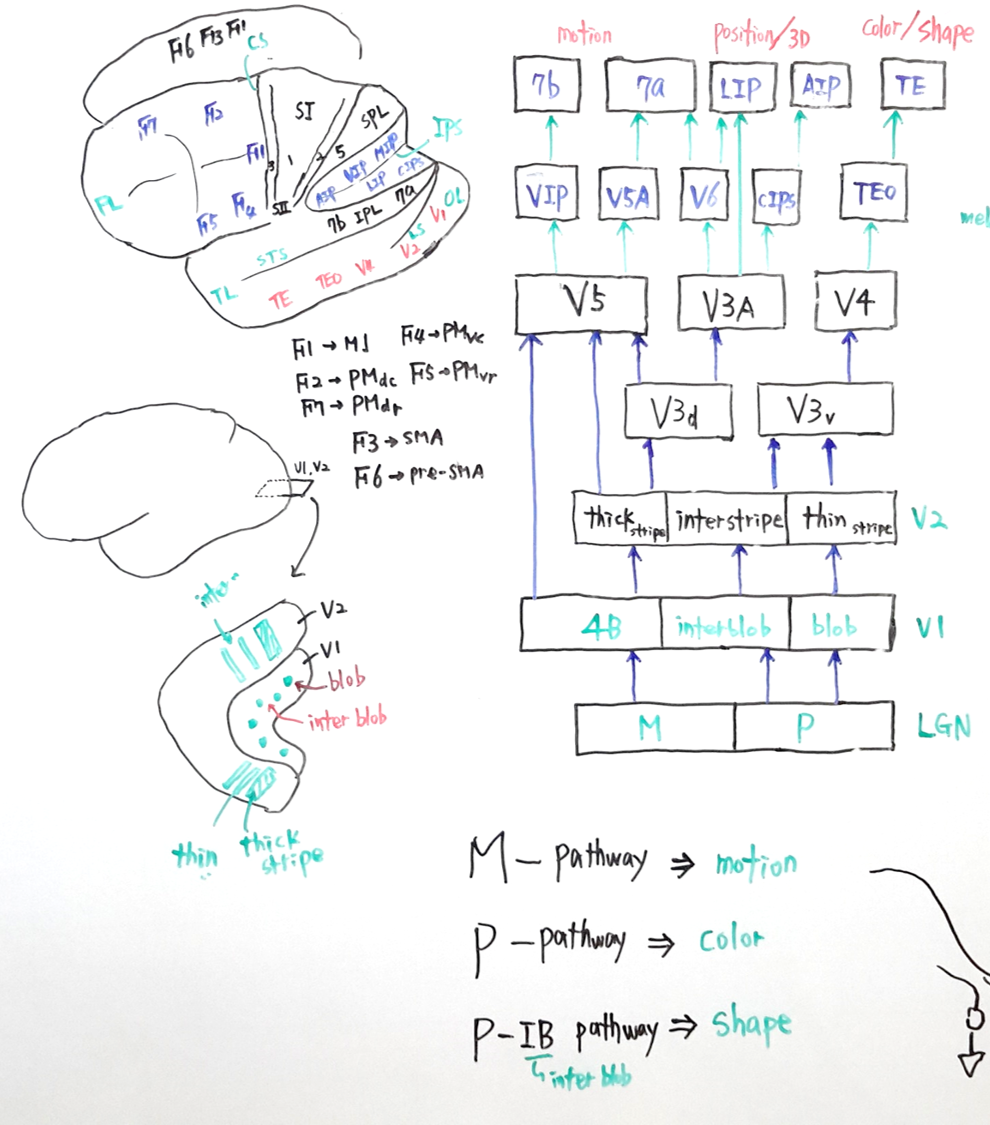 F6 F3 F1
CS
F7 F2 SI SPL IPS
F1 3 1 2 5 AIP VIP MIP
LIP CIPS
FL F5 F4 SII 7b IPL 7a V1 OL
LS
STS V2
TL TE TEO V4
F1 → M1 F4 → PMvc
F2 → PMdc F5 → PMvr
F7 → PMdr
F3 → SMA
F6 → pre-SMA
V1, V2
inter
V2
V1
blob
inter blob
thin thick
stripe
motion position/3D color/shape
7b 7a LIP AIP TE
VIP V5A V6 cIPS TEO
mel
V5 V3A V4
V3d V3v
thick stripe interstripe thin stripe V2
4B interblob blob V1
M P LGN
M - pathway ⇒ motion
P - pathway ⇒ color
P - IB pathway ⇒ shape
inter blob